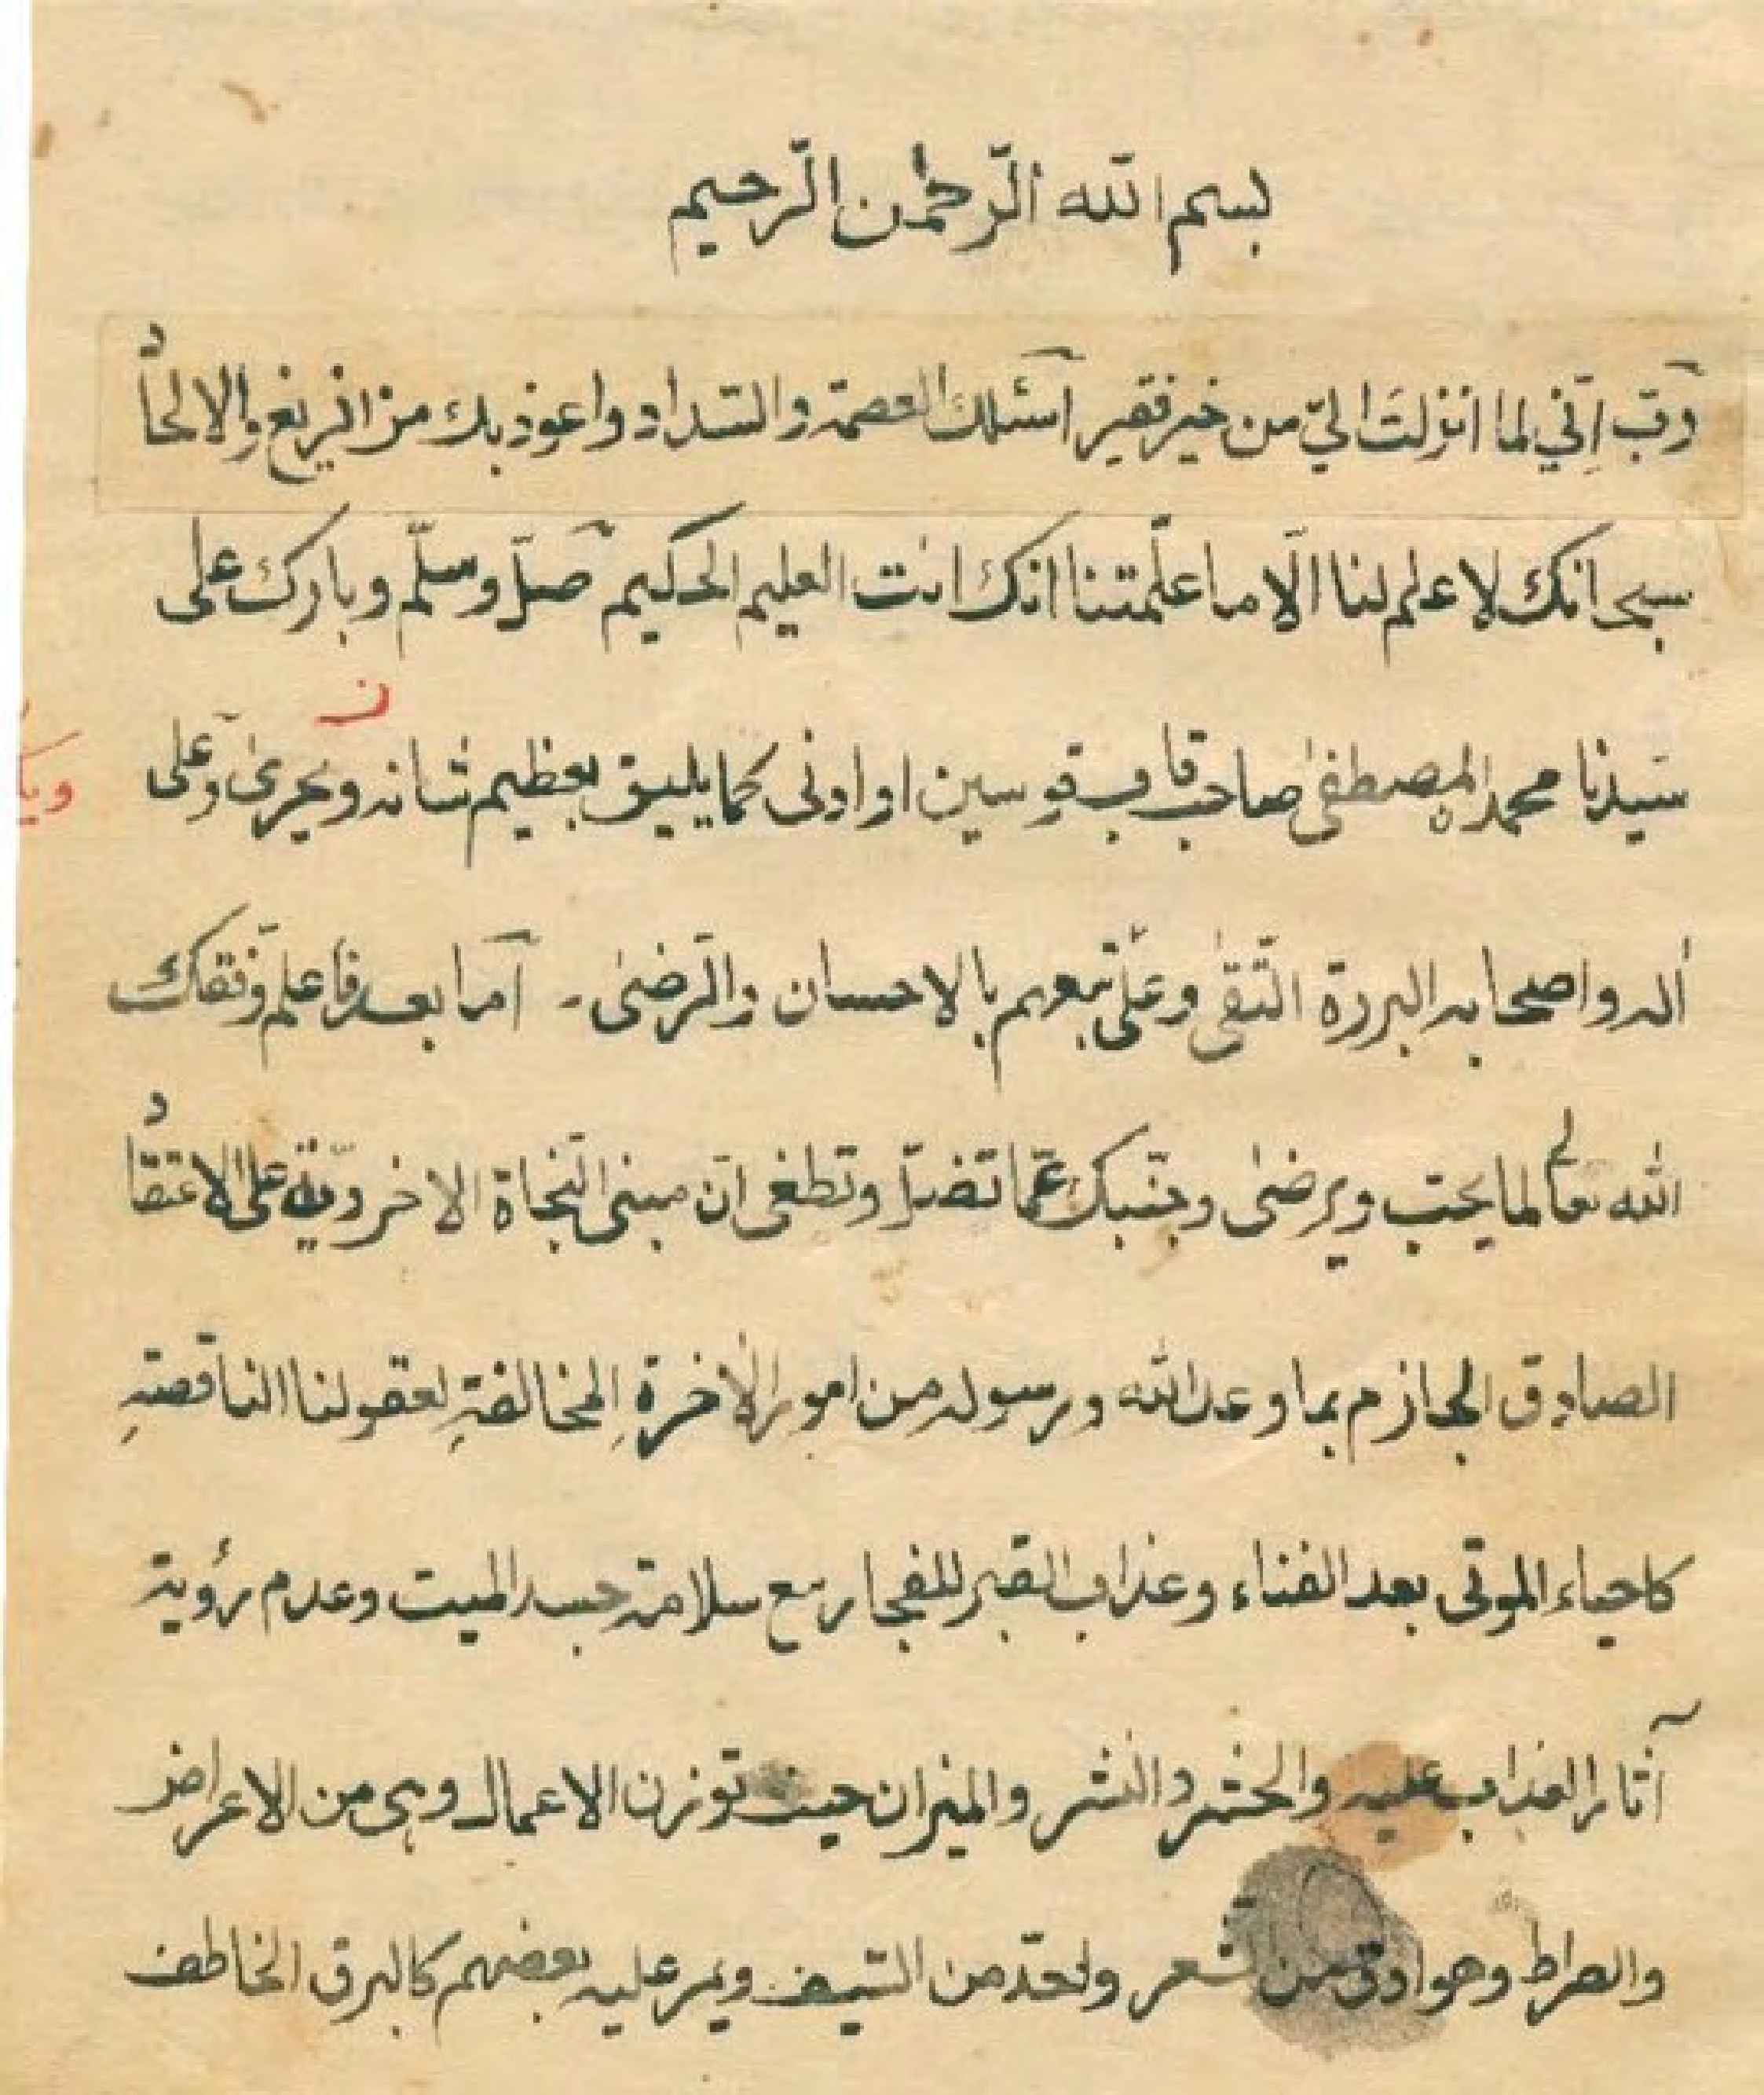 بسم الله الرّحمٰن الرّحيم
ربّ اِنّي لما انزلتَ اليّ من خير فقير اسئلك العصمة والسّداد واعوذ بك من الزيغ والالحاد
سبحانك لا علم لنا الّا ما علّمتنا انك انت العليم الحكيم صلّ وسلّم وبارك على
سيّدنا محمد المصطفىٰ صاحب قاب قوسين او ادنى كما يليق بعظيم شانه ويحرىٰ وعلى
ن
أله واصحابه البررة التّقىٰ وعلى تبعهم بالاحسان والرّضىٰ - امّا بعد فاعلم وفّقك
الله تعالى لما يحبّ ويرضىٰ وجنّبك عمّا تضلّ وتطغى انّ مبنى النّجاة الاخرويّة على الاعتقاد
الصادق الجازم بما وعد الله ورسوله من امور الاٰخرةِ المخالفةِ لعقولنا الناقصةِ
كاحياء الموتى بعد الفناء وعذاب القبر للفجار مع سلامة جسد الميت وعدم رؤية
آثار العذاب عليه والحشر والنشر والميزان حيث توزن الاعمال وهى من الاعراض
والصراط وهو ادقّ من الشعر واحدّ من السّيف ويمر عليه بعضهم كالبرق الخاطف